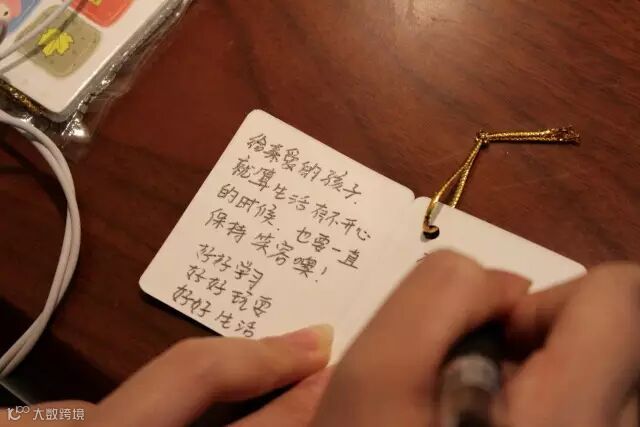 给亲爱的孩子.
就算生活有不开心
的时候.也要一直
保持笑容噢!
好好学习
好好玩耍
好好生活
大数跨境